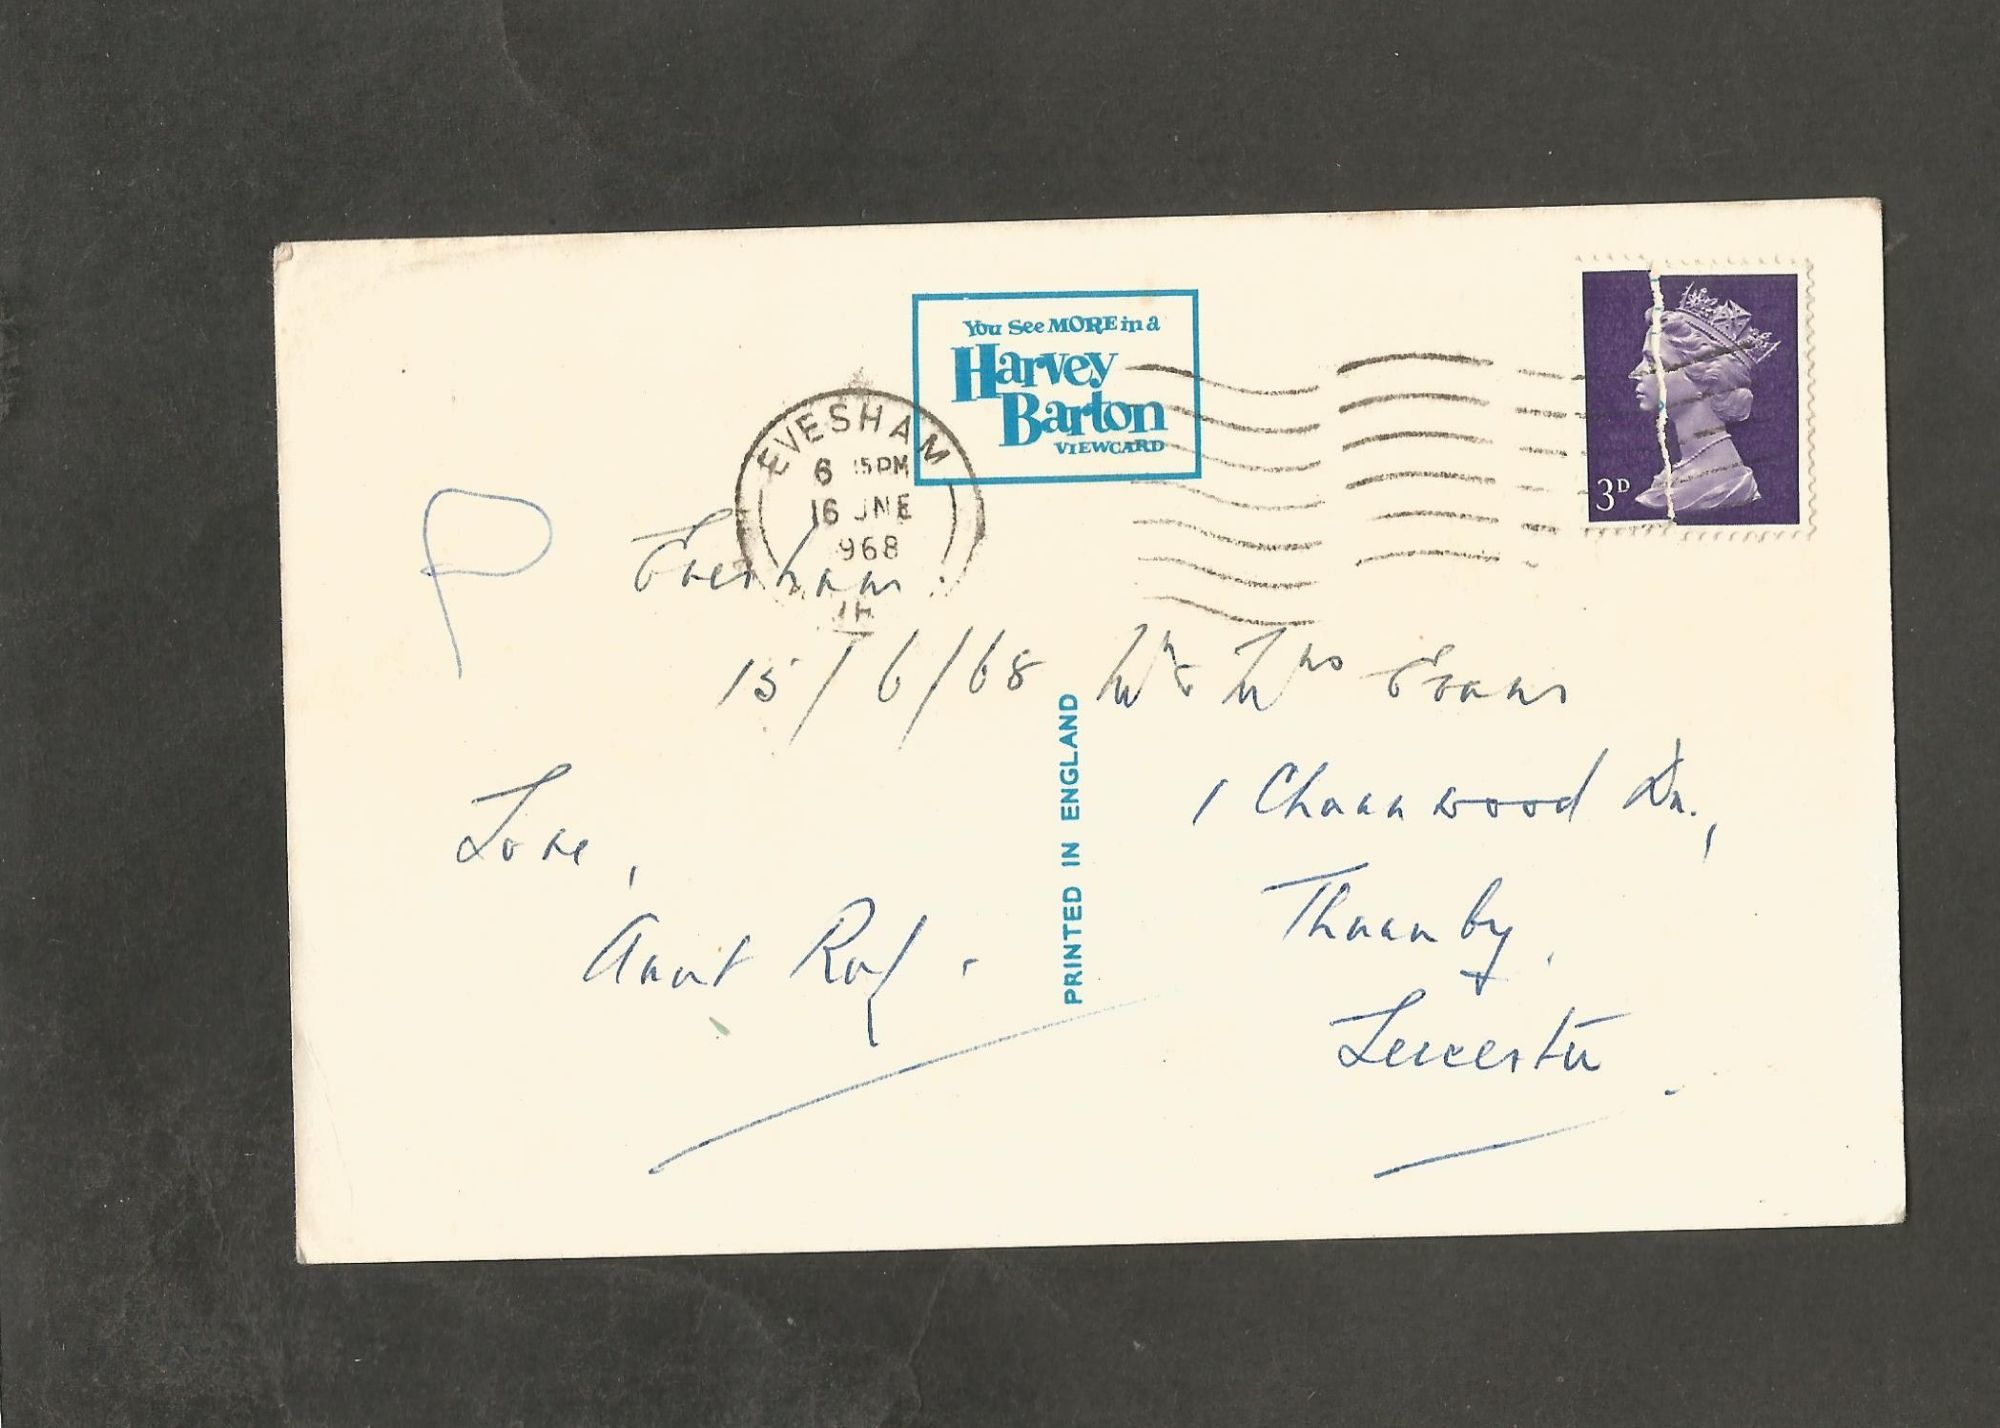 You See MORE in a
Harvey
Barton
VIEWCARD
EVESHAM
6 15PM
16 JNE
968
3D
Evesham.
15/6/68
Love,
Aunt
PRINTED IN ENGLAND
Mr & Mrs Evans
1 Charnwood Dr.,
Thurnby,
Leicester.